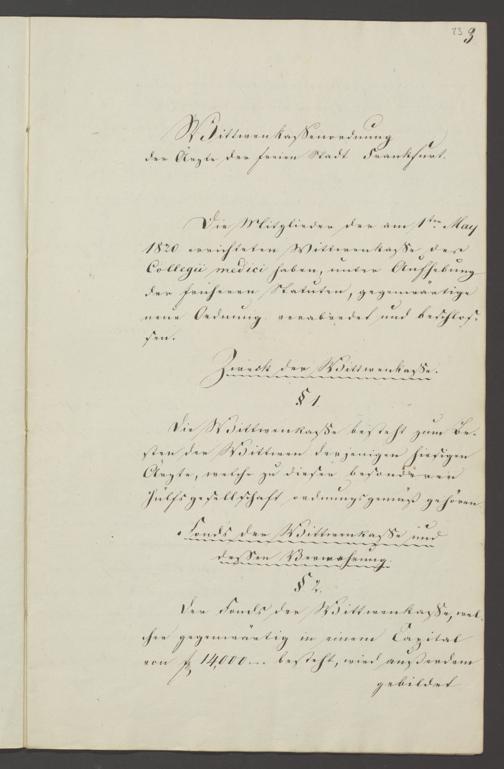 73 3
Wittwenkassenordnung
der Ärzte der freien Stadt Frankfurt.
Die Mitglieder der am 1ten May
1820 errichteten Wittwenkasse des
Collegii medici haben, unter Aufhebung
der früheren Statuten, gegenwärtige
neue Ordnung verabredet und beschlos-
sen.
Zweck der Wittwenkasse.
§ 1
Die Wittwenkasse besteht zum Be-
sten der Wittwen derjenigen hiesigen
Ärzte, welche zu dieser besonderen
Hülfsgesellschaft ordnungsgemäß gehören.
Fonds der Wittwenkasse und
dessen Verwahrung.
§ 2.
Der Fonds der Wittwenkasse, wel-
cher gegenwärtig in einem Capital
von f 14,000 besteht, wird außerdem
gebildet